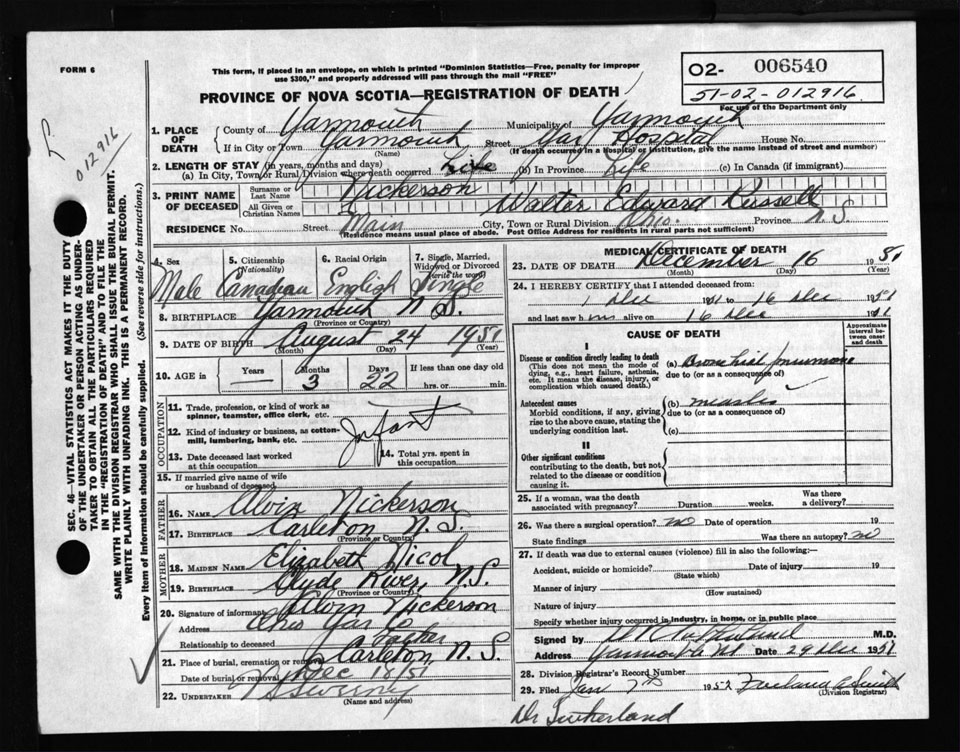 FORM 6
This form, if placed in an envelope, on which is printed "Dominion Statistics—Free, penalty for improper
use $300," and properly addressed will pass through the mail "FREE"
02- 006540
51-02-012916
For use of the Department only
PROVINCE OF NOVA SCOTIA—REGISTRATION OF DEATH
L 012916
SEC. 46—VITAL STATISTICS ACT MAKES IT THE DUTY
OF THE UNDERTAKER OR PERSON ACTING AS UNDER-
TAKER TO OBTAIN ALL THE PARTICULARS REQUIRED
IN THE "REGISTRATION OF DEATH" AND TO FILE THE
SAME WITH THE DIVISION REGISTRAR WHO SHALL ISSUE THE BURIAL PERMIT.
WRITE PLAINLY WITH UNFADING INK. THIS IS A PERMANENT RECORD.
Every item of information should be carefully supplied. (See reverse side for instructions.)
1. PLACE OF DEATH County of Yarmouth Municipality of Yarmouth
If in City or Town Yarmouth (Name) Street Yar Hospital House No.
(If death occurred in a Hospital or Institution, give the name instead of street and number)
2. LENGTH OF STAY (in years, months and days)
(a) In City, Town or Rural Division where death occurred Life (b) In Province Life (c) In Canada (if immigrant)
3. PRINT NAME OF DECEASED Surname or Last Name Nickerson
All Given or Christian Names Walter Edward Russell
RESIDENCE No. Street Main City, Town or Rural Division Ohio. Province N.S.
(Residence means usual place of abode. Post Office Address for residents in rural parts not sufficient)
4. Sex Male
5. Citizenship (Nationality) Canadian
6. Racial Origin English
7. Single, Married, Widowed or Divorced (write the word) Single
8. BIRTHPLACE Yarmouth N.S.
(Province or Country)
9. DATE OF BIRTH August 24 1951
(Month) (Day) (Year)
10. AGE in Years — Months 3 Days 22 If less than one day old hrs. or min.
OCCUPATION
11. Trade, profession, or kind of work as spinner, teamster, office clerk, etc.
12. Kind of industry or business, as cotton-mill, lumbering, bank, etc. Infant
13. Date deceased last worked at this occupation
14. Total yrs. spent in this occupation
15. If married give name of wife or husband of deceased
FATHER
16. NAME Alvin Nickerson
17. BIRTHPLACE Carleton N.S.
(Province or Country)
MOTHER
18. MAIDEN NAME Elizabeth Nicol
19. BIRTHPLACE Clyde River, N.S.
(Province or Country)
20. Signature of informant Alvin Nickerson
Address Ohio Yar Co
Relationship to deceased Father
21. Place of burial, cremation or removal Carleton N.S.
Date of burial or removal Dec 18/51
22. UNDERTAKER Sweeny
(Name and address)
MEDICAL CERTIFICATE OF DEATH
23. DATE OF DEATH December 16 1951
(Month) (Day) (Year)
24. I HEREBY CERTIFY that I attended deceased from:
1 Dec 1951 to 16 Dec 1951
and last saw him alive on 16 Dec 1951
CAUSE OF DEATH
Approximate interval between onset and death
I
Disease or condition directly leading to death
(This does not mean the mode of dying, e.g., heart failure, asthenia, etc. It means the disease, injury, or complication which caused death.)
(a) Bronchial pneumonia
due to (or as a consequence of)
Antecedent causes
Morbid conditions, if any, giving rise to the above cause, stating the underlying condition last.
(b) measles
due to (or as a consequence of)
(c)
II
Other significant conditions
contributing to the death, but not related to the disease or condition causing it.
25. If a woman, was the death associated with pregnancy? Duration: weeks. Was there a delivery?
26. Was there a surgical operation? no Date of operation 19
State findings Was there an autopsy? no
27. If death was due to external causes (violence) fill in also the following:—
Accident, suicide or homicide? Date of injury 19
(State which)
Manner of injury
(How sustained)
Nature of injury
Specify whether injury occurred in industry, in home, or in public place
Signed by M.D.
Address Yarmouth Date 29 Dec 1951
28. Division Registrar's Record Number
29. Filed Jan 7th 1952
(Division Registrar)
Dr Sutherland